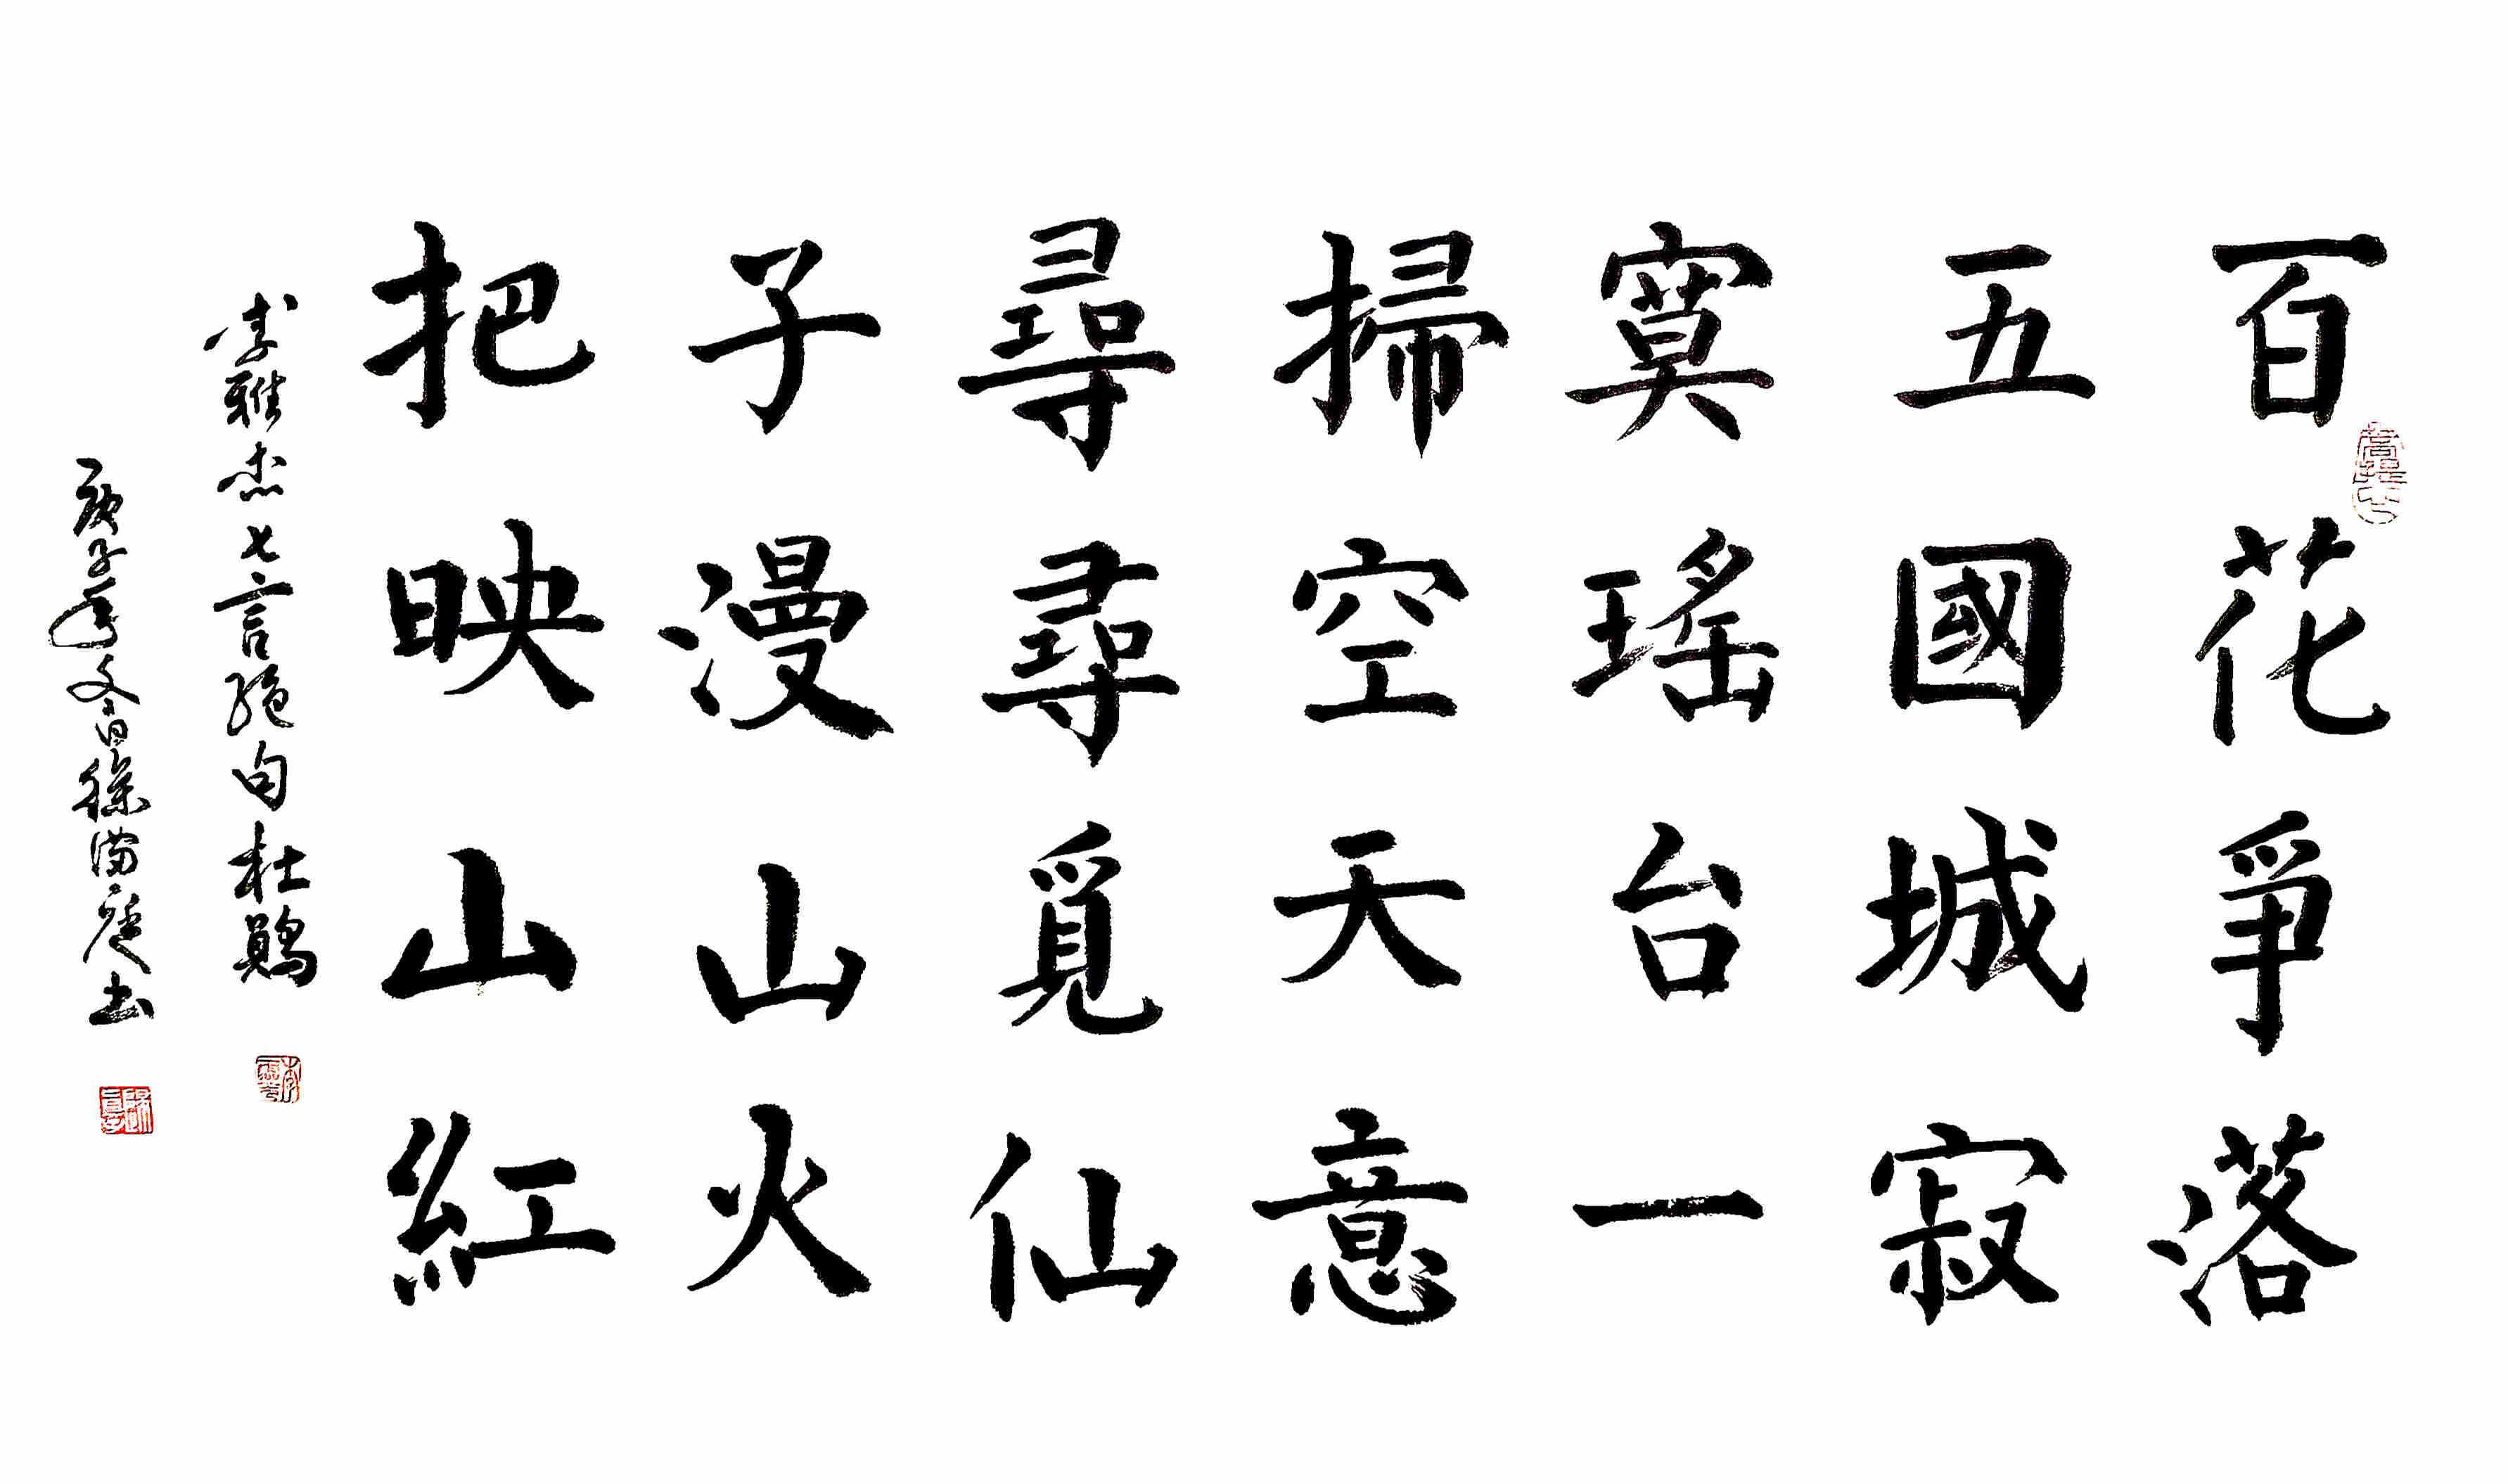 百花爭落
五國城寂
寞瑤台一
掃空天意
尋尋覓仙
子漫山火
把映山紅
李雅杰七言絕句杜鵑
庚子年冬日孫滿庭书